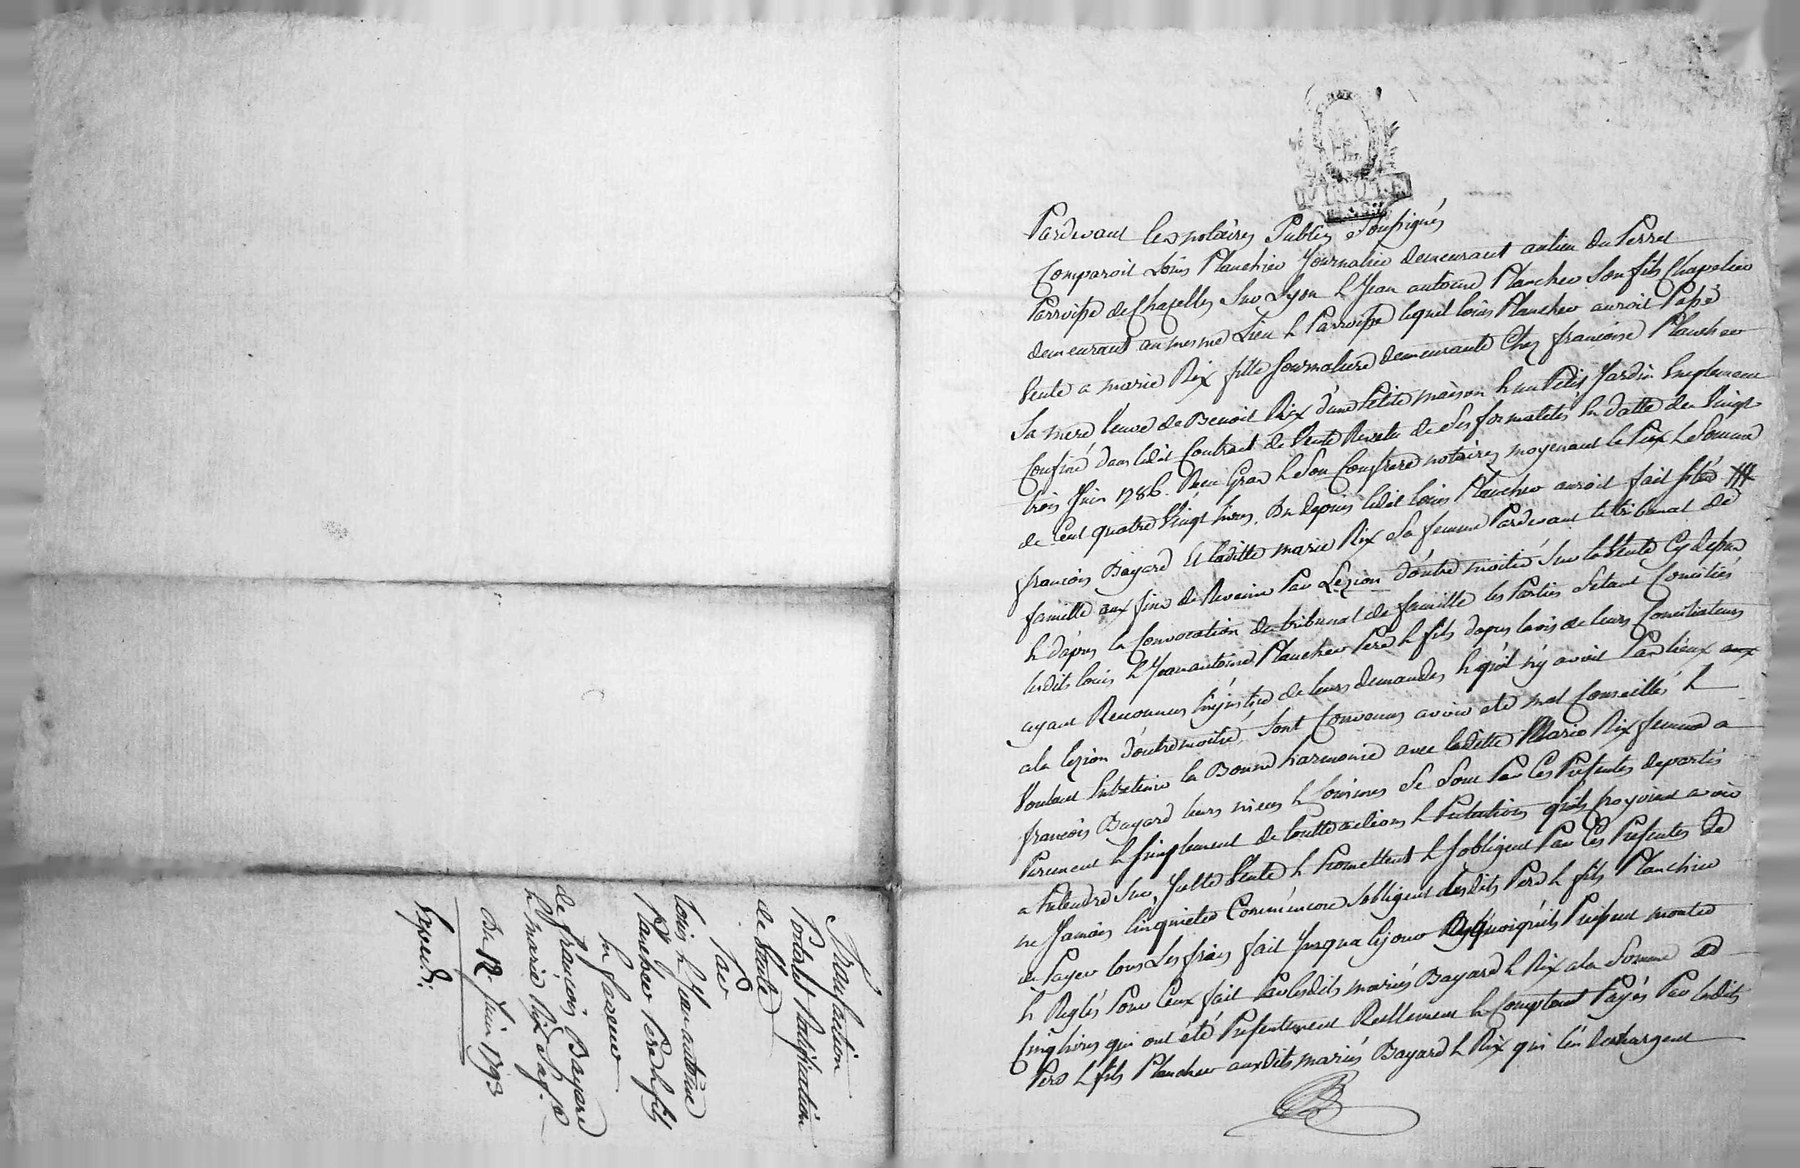 Pardevant les notaires Publics Soussignés
Comparoit Loüis Planchier Journalier demeurant au lieu du Perret
Parroisse de Chazelles Sur Lyon & Jean antoine Plancher Son fils Chapelier
demeurant au mesme Lieu & Parroisse lequel loüis Plancher auroit Passé
Vente a marie Rix fille Journaliere demeurante Chez francoise Plancher
Sa mere Veuve de Benoit Rix d'une Petite maison & un Petit Jardin
Confiné dans ledit Contract de Vente Revetu de Ses formalités En datte du Vingt
trois Juin 1786. Reçu Gras & Son Confrere notaires moyenant le Prix & Somme
de Cent quatre Vingt livres. Du depuis ledit loüis Plancher auroit fait
francois Bayard & laditte marie Rix Sa femme Pardevant le tribunal de
famille aux fins de Revenir Par Lezion d'outre moitié Sur la Vente Cy dessus
& dapres la Convocation du tribunal de famille les Parties S'etant Conciliés
lesdits louis & Jean antoine Plancher Pere & fils dapres lavis de leurs Conciliateurs
ayant Reconnus linjustice de leurs demandes & quil ny avoit Pas lieux
a la lezion d'outre moitié, Sont Convenus avoir été mal Conseillés &
Voulant Entretenir la Bonne harmonie avec laditte Marie Rix femme a
francois Bayard leurs niece & Cousine Se Sont Par Ces Presentes departis
Purement & Simplement de toutte actions & Pretentions quils Croyoient avoir
a Pretendre Sur Ladte Vente & Promettent & Sobligent Par Ces Presentes de
ne Jamais linquieter Comm'encore Sobligent lesdits Pere & fils Plancher
de Payer tous Les frais fait Jusqua Cejour quoiquils Puissent monter
& Reglés Pour Ceux fait Par lesdits mariés Bayard & Rix a la Somme de
Cinq livres qui ont été Presentement Reellement & Comptant Payés Par lesdits
Pere & fils Plancher auxdits mariés Bayard & Rix qui l'en dechargent
Transaction
Portant Ratification
de Vente
Par
loüis & Jean antoine
Plancher Pere & fils
En faveur
de francois Bayard
& marie Rix
Du 12 Juin 1793
Expedi: